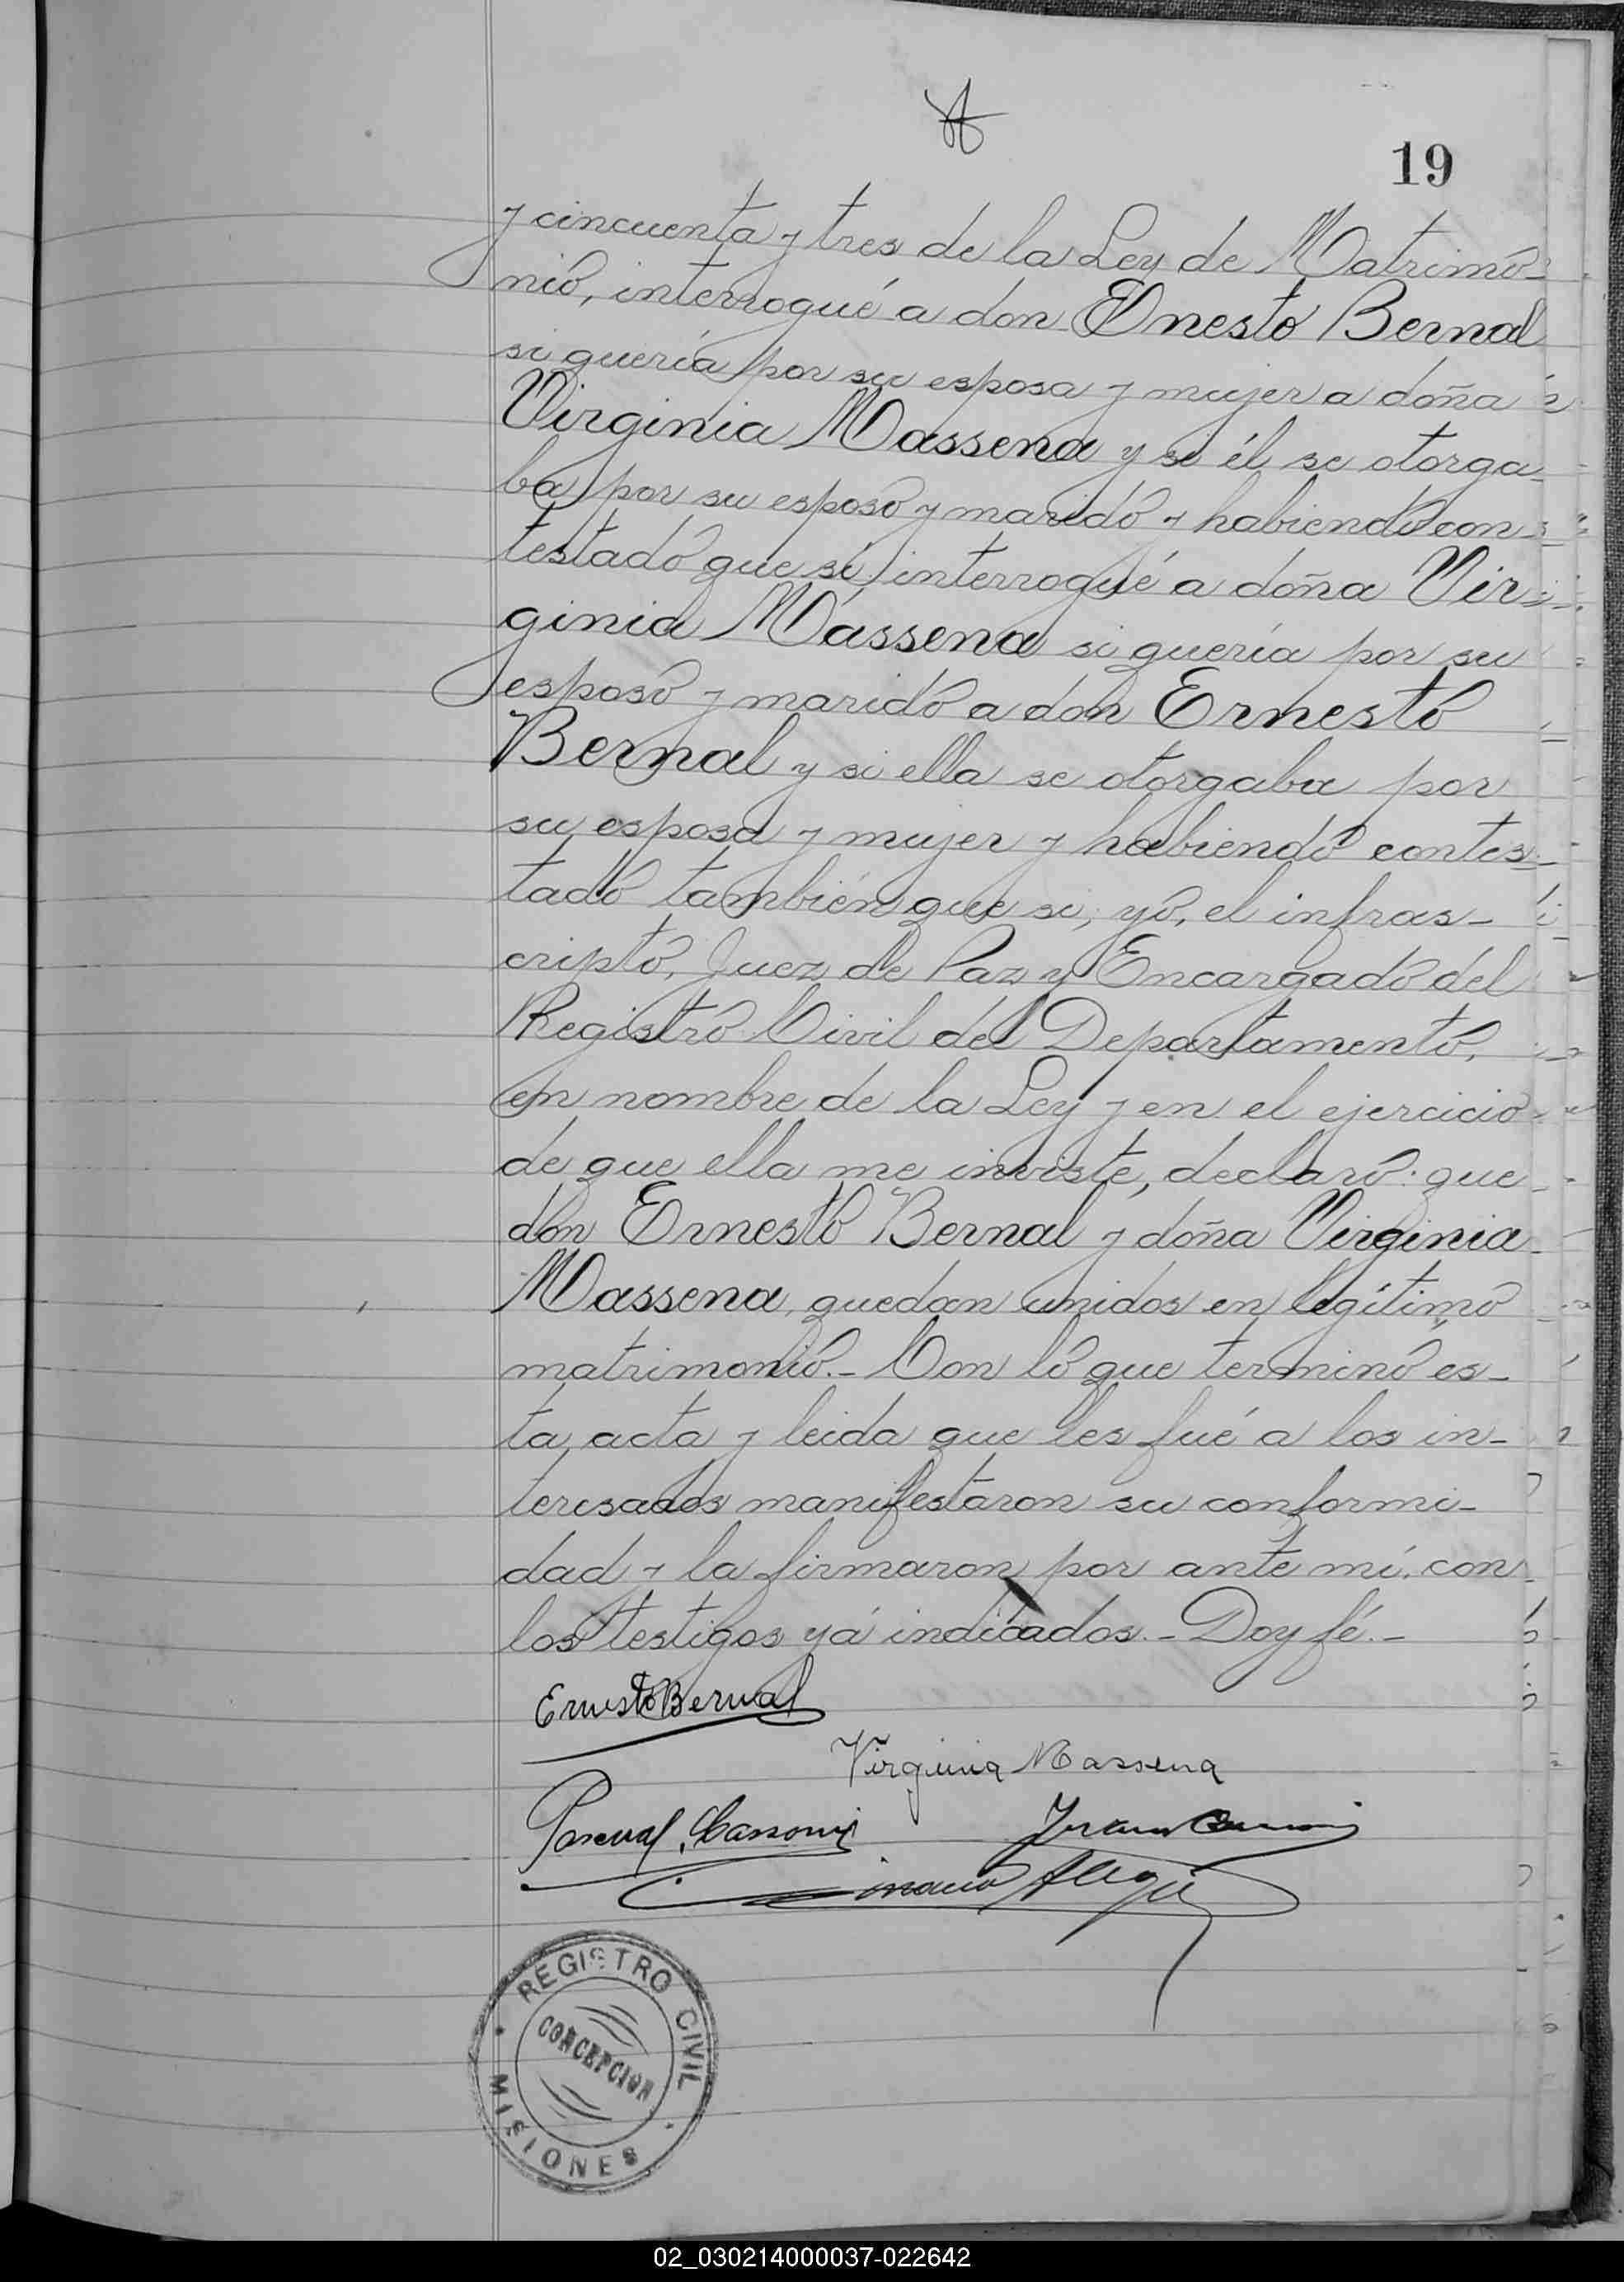 19
y cincuenta y tres de la Ley de Matrimo-
nio, interrogué a don Ernesto Bernal
si quería por su esposa y mujer a doña
Virginia Massena y si él se otorga-
ba por su esposo y marido y habiendo con-
testado que sí, interrogué a doña Vir-
ginia Massena si quería por su
esposo y marido a don Ernesto
Bernal y si ella se otorgaba por
su esposa y mujer y habiendo contes-
tado también que si; yo, el infras-
cripto, Juez de Paz y Encargado del
Registro Civil del Departamento,
en nombre de la Ley y en el ejercicio
de que ella me inviste, declaro: que
don Ernesto Bernal y doña Virginia
Massena, quedan unidos en legítimo
matrimonio.- Con lo que terminó es-
ta acta y leida que les fué a los in-
teresados manifestaron su conformi-
dad y la firmaron por ante mí, con
los testigos yá indicados.- Doy fé.-
Ernesto Bernal
Virginia Massena
Pascual
Juan
REGISTRO CIVIL
CONCEPCION
MISIONES
02_030214000037-022642